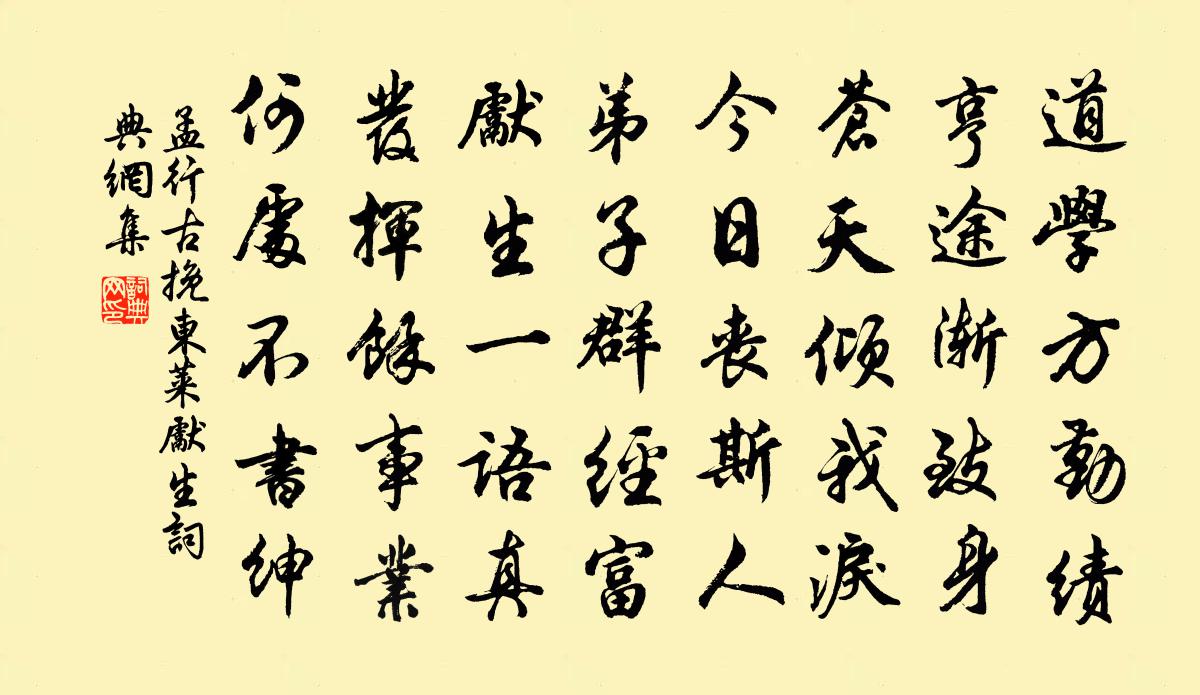 道學方勤績
亨途漸致身
蒼天傾我淚
今日丧斯人
弟子群經富
獻生一語真
發揮餘事業
何處不書紳
孟行古挽東萊獻生詞
典網集
詞典网印